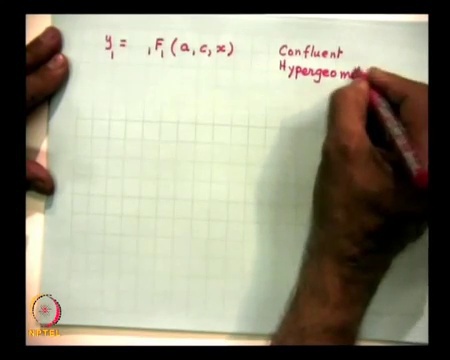 y₁ = ₁F₁ (a, c, x)
Confluent
Hypergeom
NPTEL